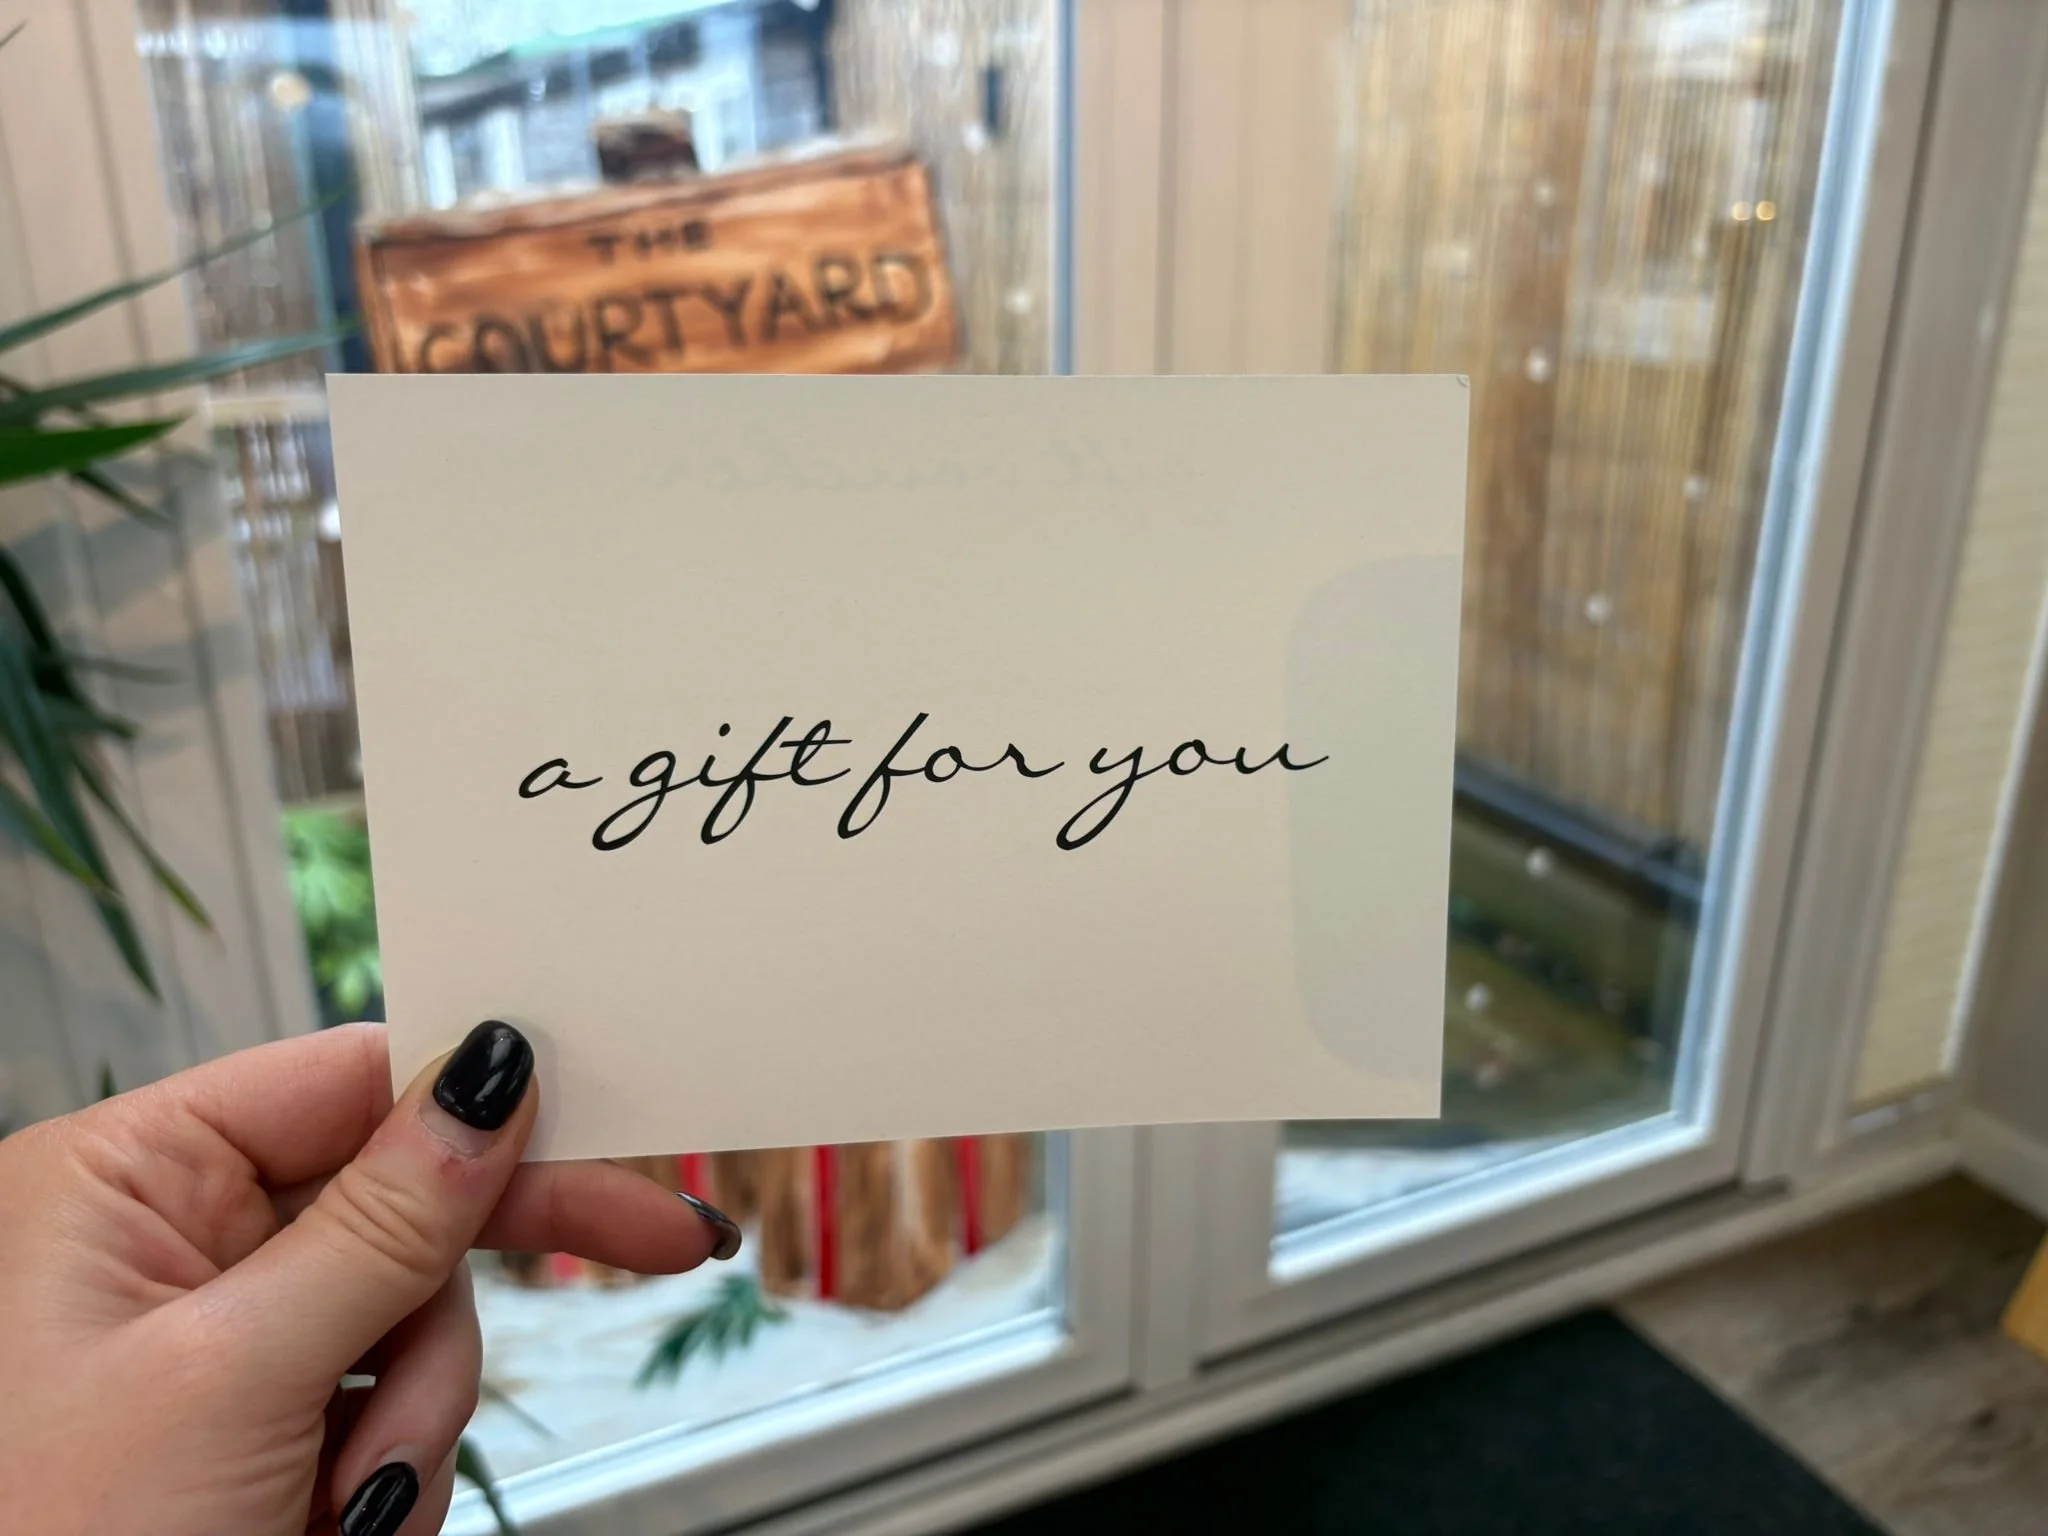 THE
COURTYARD
a gift for you